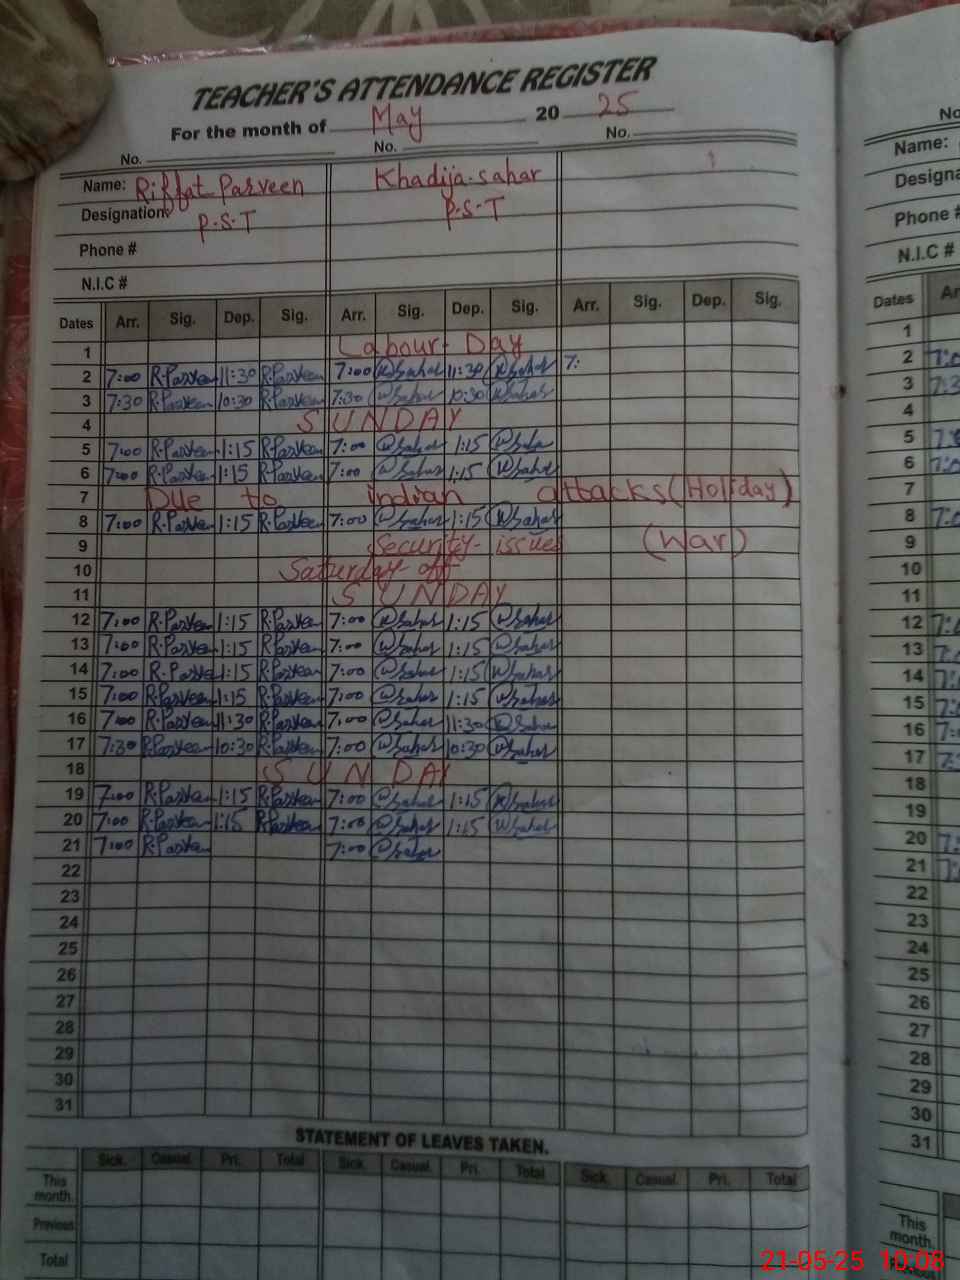 TEACHER'S ATTENDANCE REGISTER
For the month of May 20 25
No. No. No.
Name: Riffat Parveen Khadija.sahar
Designation: P.S.T P.S.T
Phone #
N.I.C #
Dates Arr. Sig. Dep. Sig. Arr. Sig. Dep. Sig. Arr. Sig. Dep. Sig.
1 Labour Day
2 7:00 R.Parveen 11:30 R.Parveen 7:00 Sahar 11:30 Sahar 7:
3 7:30 R.Parveen 10:30 R.Parveen 7:30 Sahar 10:30 Sahar
4 SUNDAY
5 7:00 R.Parveen 1:15 R.Parveen 7:00 Sahar 1:15 Sahar
6 7:00 R.Parveen 1:15 R.Parveen 7:00 Sahar 1:15 Sahar
7 Due to indian attacks (Holiday)
8 7:00 R.Parveen 1:15 R.Parveen 7:00 Sahar 1:15 Sahar
9 Security issues (War)
10 Saturday off
11 SUNDAY
12 7:00 R.Parveen 1:15 R.Parveen 7:00 Sahar 1:15 Sahar
13 7:00 R.Parveen 1:15 R.Parveen 7:00 Sahar 1:15 Sahar
14 7:00 R.Parveen 1:15 R.Parveen 7:00 Sahar 1:15 Sahar
15 7:00 R.Parveen 1:15 R.Parveen 7:00 Sahar 1:15 Sahar
16 7:00 R.Parveen 11:30 R.Parveen 7:00 Sahar 11:30 Sahar
17 7:30 R.Parveen 10:30 R.Parveen 7:00 Sahar 10:30 Sahar
18 SUNDAY
19 7:00 R.Parveen 1:15 R.Parveen 7:00 Sahar 1:15 Sahar
20 7:00 R.Parveen 1:15 R.Parveen 7:00 Sahar 1:15 Sahar
21 7:00 R.Parveen 7:00 Sahar
22
23
24
25
26
27
28
29
30
31
STATEMENT OF LEAVES TAKEN.
Sick. Casual. Pri. Total Sick. Casual. Pri. Total Sick. Casual. Pri. Total
This month.
Previous
Total
No
Name:
Phone #
N.I.C #
Dates
1
2
3
4
5
6
7
8
9
10
11
12
13
14
15
16
17
18
19
20
21
22
23
24
25
26
27
28
29
30
31
This month.
21-05-25 10:08